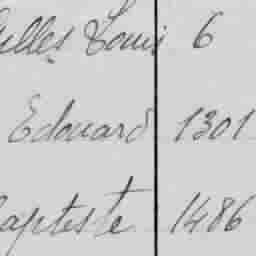 Gilles Louis 6
Edouard 1301
Baptiste 1486